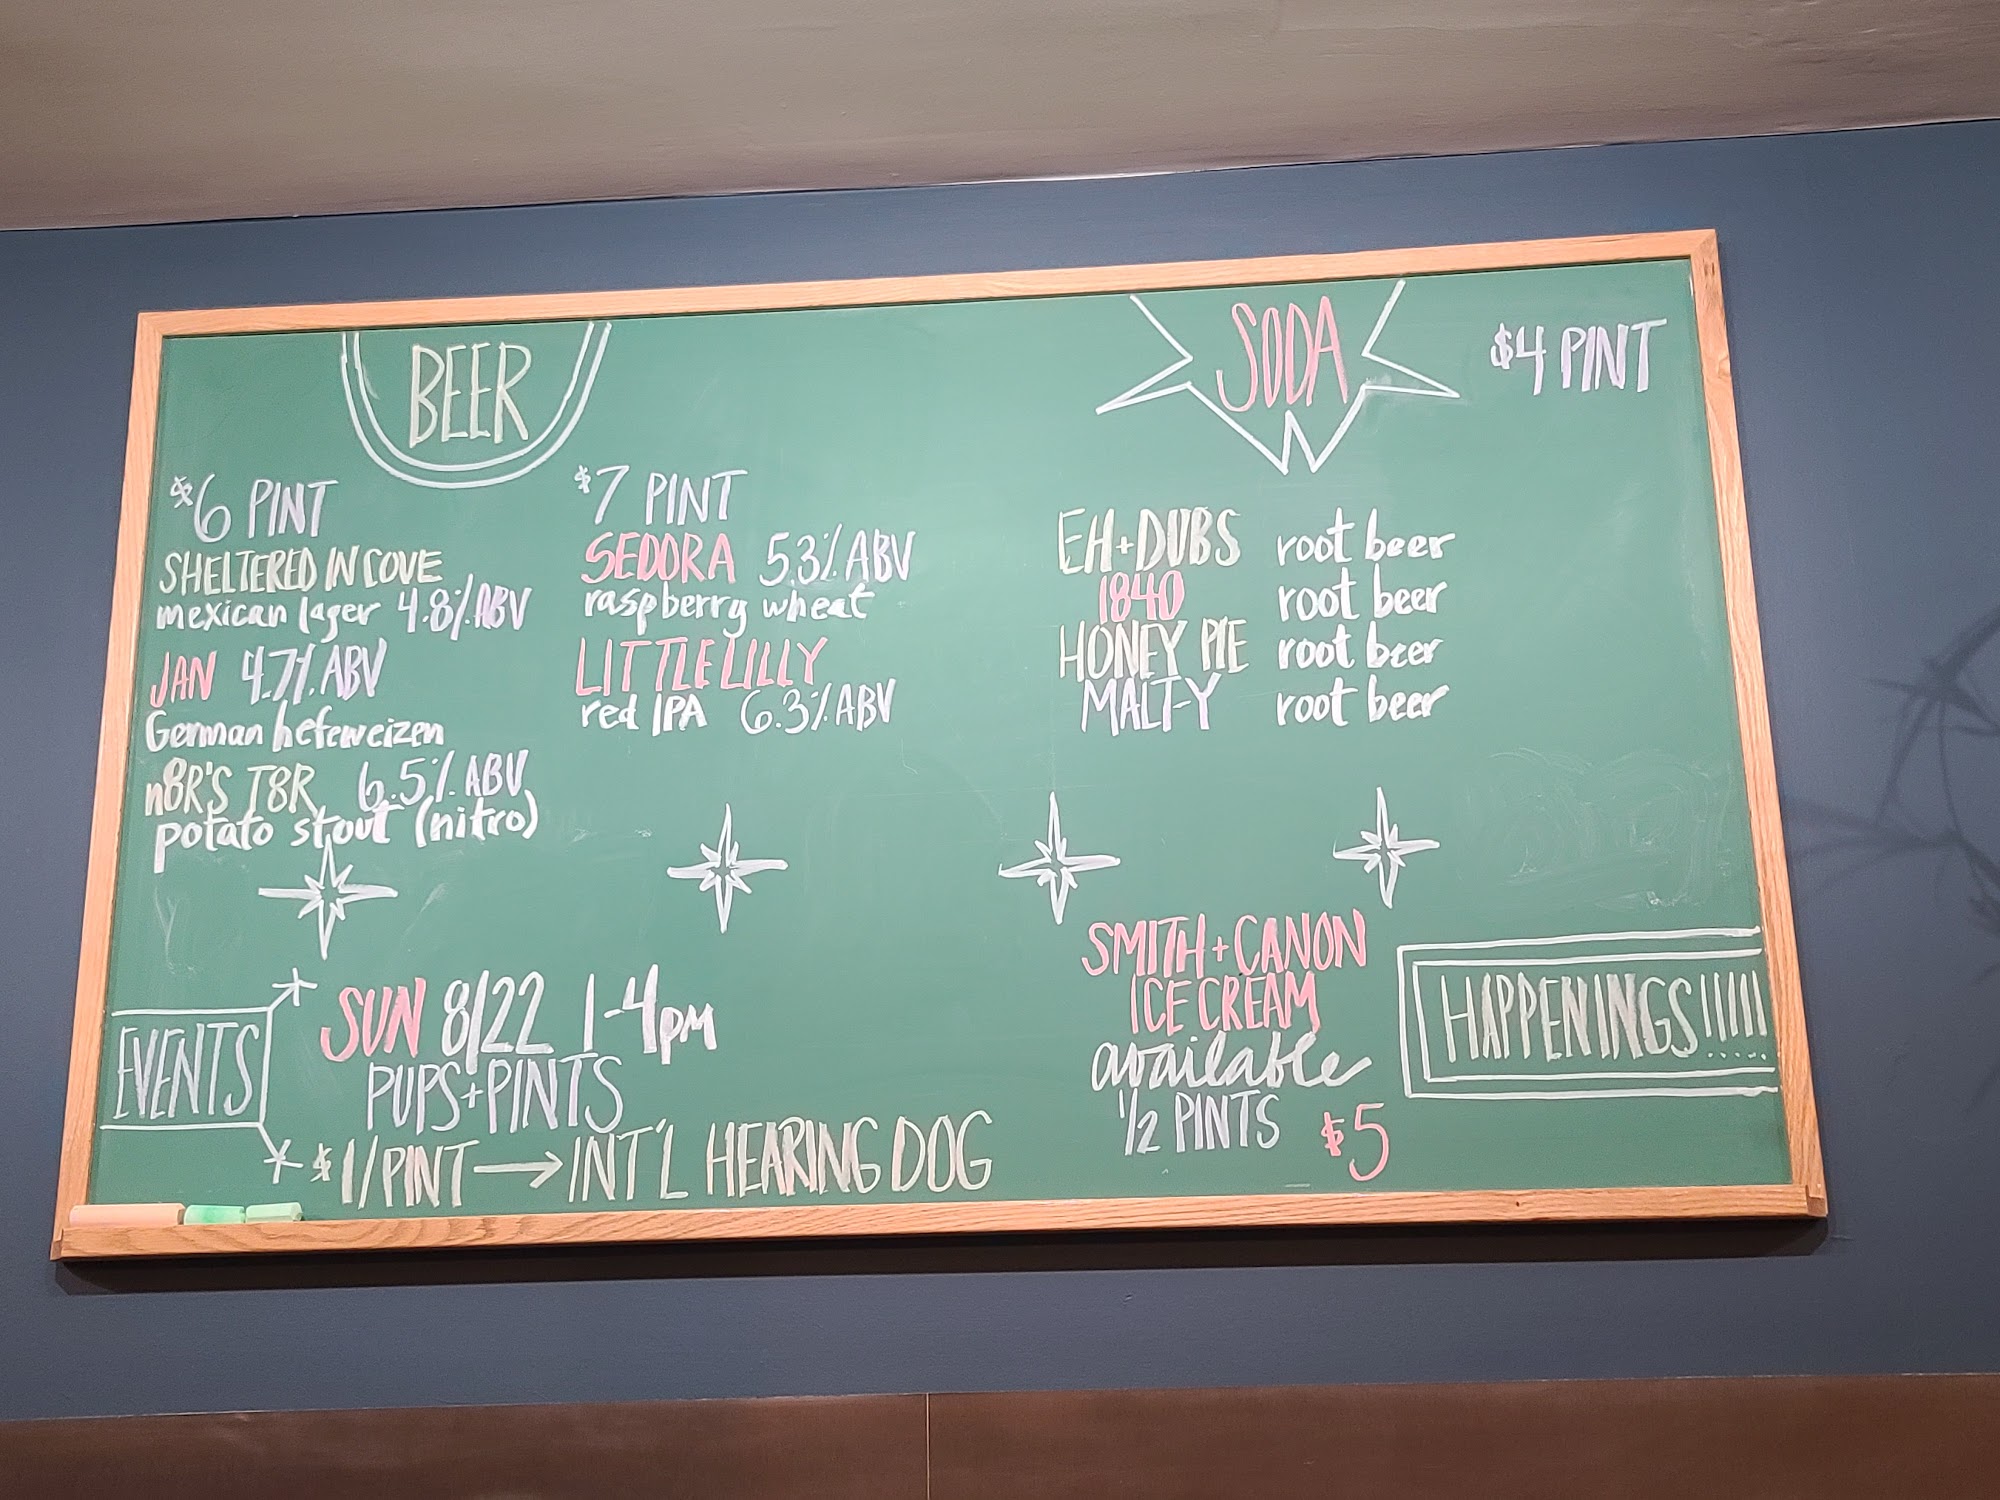 BEER
$6 PINT
SHELTERED IN COVE
mexican lager 4.8% ABV
JAN 4.7% ABV
German hefeweizen
n8R'S T8R 6.5% ABV
potato stout (nitro)
$7 PINT
SEDORA 5.3% ABV
raspberry wheat
LITTLE LILLY
red IPA 6.3% ABV
SODA $4 PINT
EH+DUBS root beer
1840 root beer
HONEY PIE root beer
MALT-Y root beer
EVENTS
SUN 8/22 1-4pm
PUPS+PINTS
$1/PINT → INT'L HEARING DOG
SMITH+CANON
ICE CREAM
available
1/2 PINTS $5
HAPPENINGS!!!!!